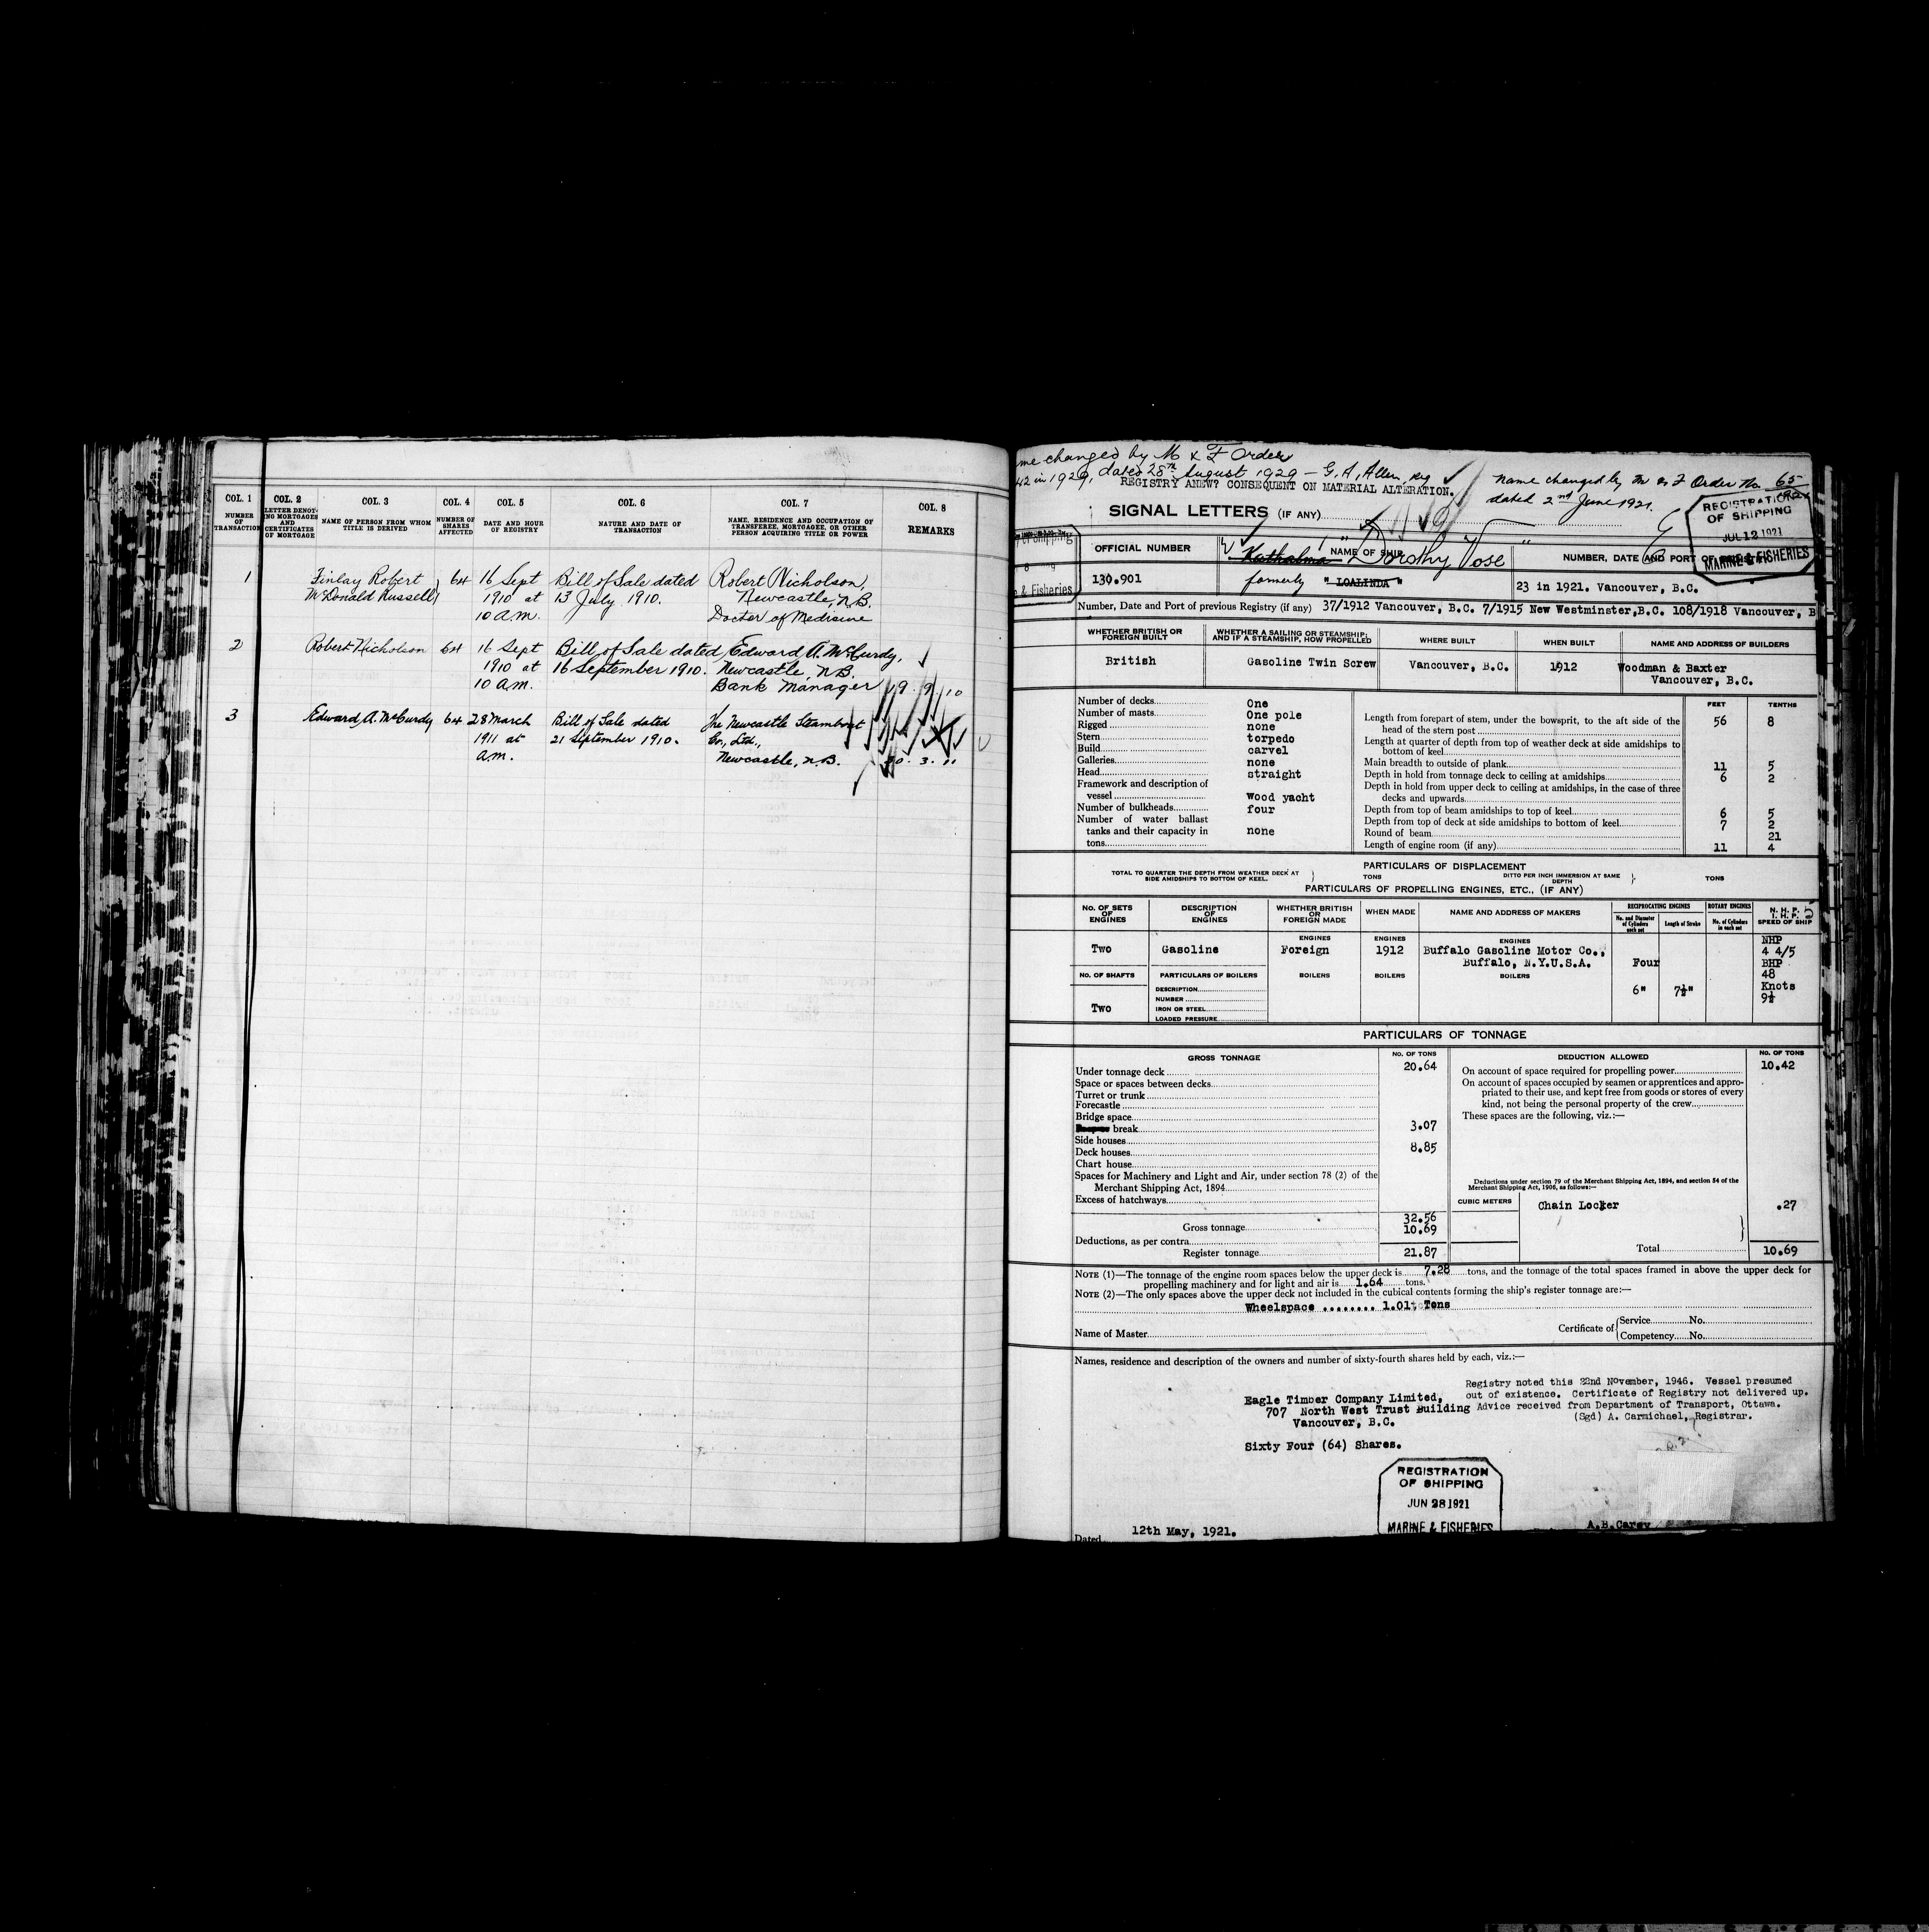 COL. 1
NUMBER
OF
TRANSACTION
COL. 2
LETTER DENOT-
ING MORTGAGES
AND
CERTIFICATES
OF MORTGAGE
COL. 3
NAME OF PERSON FROM WHOM
TITLE IS DERIVED
COL. 4
NUMBER OF
SHARES
AFFECTED
COL. 5
DATE AND HOUR
OF REGISTRY
COL. 6
NATURE AND DATE OF
TRANSACTION
COL. 7
NAME, RESIDENCE AND OCCUPATION OF
TRANSFEREE, MORTGAGEE, OR OTHER
PERSON ACQUIRING TITLE OR POWER
COL. 8
REMARKS
1 Finlay Robert } 64 16 Sept Bill of Sale dated Robert Nicholson,
McDonald Russell 1910 at 13 July 1910. Newcastle, N.B.
10 A.M. Doctor of Medicine
2 Robert Nicholson 64 16 Sept Bill of Sale dated Edward A. McCurdy,
1910 at 16 September 1910. Newcastle, N.B.
10 A.M. Bank Manager 19 . 9 . 10
3 Edward A. McCurdy 64 28 March Bill of Sale dated The Newcastle Steamboat
1911 at 21 September 1910. Co., Ltd.,
A.M. Newcastle, N.B. 30 . 3 . 11
me changed by M & F Order
42 in 1929, dated 28th August 1929 - G. A. Allen, Reg
REGISTRY ANEW? CONSEQUENT ON MATERIAL ALTERATION.
Name changed by M & F Order No. 65
1921
dated 2nd June 1921.
REGISTRATION
OF SHIPPING
JUL 12 1921
MARINE & FISHERIES
SIGNAL LETTERS (IF ANY)
of Shipping
& Fisheries
OFFICIAL NUMBER
130.901
NAME OF SHIP
Kathalma Dorothy Vose
formerly " LOALINDA "
NUMBER, DATE AND PORT OF
23 in 1921. Vancouver, B.C.
Number, Date and Port of previous Registry (if any) 37/1912 Vancouver, B.C. 7/1915 New Westminster,B.C. 108/1918 Vancouver, B
WHETHER BRITISH OR
FOREIGN BUILT
WHETHER A SAILING OR STEAMSHIP;
AND IF A STEAMSHIP, HOW PROPELLED
WHERE BUILT
WHEN BUILT
NAME AND ADDRESS OF BUILDERS
British Gasoline Twin Screw Vancouver, B.C. 1912 Woodman & Baxter
Vancouver, B.C.
Number of decks One
Number of masts One pole
Rigged none
Stern torpedo
Build carvel
Galleries none
Head straight
Framework and description of
vessel Wood yacht
Number of bulkheads four
Number of water ballast
tanks and their capacity in none
tons
FEET TENTHS
Length from forepart of stem, under the bowsprit, to the aft side of the 56 8
head of the stern post
Length at quarter of depth from top of weather deck at side amidships to
bottom of keel
Main breadth to outside of plank 11 5
Depth in hold from tonnage deck to ceiling at amidships 6 2
Depth in hold from upper deck to ceiling at amidships, in the case of three
decks and upwards
Depth from top of beam amidships to top of keel 6 5
Depth from top of deck at side amidships to bottom of keel 7 2
Round of beam 21
Length of engine room (if any) 11 4
PARTICULARS OF DISPLACEMENT
TOTAL TO QUARTER THE DEPTH FROM WEATHER DECK AT
SIDE AMIDSHIPS TO BOTTOM OF KEEL. } TONS
DITTO PER INCH IMMERSION AT SAME
DEPTH } TONS
PARTICULARS OF PROPELLING ENGINES, ETC., (IF ANY)
No. OF SETS
OF
ENGINES
DESCRIPTION
OF
ENGINES
WHETHER BRITISH
OR
FOREIGN MADE
WHEN MADE
NAME AND ADDRESS OF MAKERS
RECIPROCATING ENGINES
No. and Diameter
of Cylinders
each set
Length of Stroke
ROTARY ENGINES
No. of Cylinders
in each set
N. H. P. 5
I. H. P.
SPEED OF SHIP
ENGINES ENGINES ENGINES
Two Gasoline Foreign 1912 Buffalo Gasoline Motor Co.,
Buffalo, N.Y.U.S.A. Four
NHP
4 4/5
BHP
48
Knots
9½
No. OF SHAFTS PARTICULARS OF BOILERS BOILERS BOILERS BOILERS
6" 7½"
Two
DESCRIPTION
NUMBER
IRON OR STEEL
LOADED PRESSURE
PARTICULARS OF TONNAGE
GROSS TONNAGE No. OF TONS
Under tonnage deck 20.64
Space or spaces between decks
Turret or trunk
Forecastle
Bridge space
break 3.07
Side houses
Deck houses 8.85
Chart house
Spaces for Machinery and Light and Air, under section 78 (2) of the
Merchant Shipping Act, 1894
Excess of hatchways
Gross tonnage 32.56
Deductions, as per contra 10.69
Register tonnage 21.87
DEDUCTION ALLOWED No. OF TONS
On account of space required for propelling power 10.42
On account of spaces occupied by seamen or apprentices and appro-
priated to their use, and kept free from goods or stores of every
kind, not being the personal property of the crew
These spaces are the following, viz.:—
Deductions under section 79 of the Merchant Shipping Act, 1894, and section 54 of the
Merchant Shipping Act, 1906, as follows:—
CUBIC METERS Chain Locker .27
Total 10.69
NOTE (1)—The tonnage of the engine room spaces below the upper deck is 7.28 tons, and the tonnage of the total spaces framed in above the upper deck for
propelling machinery and for light and air is 1.64 tons.
NOTE (2)—The only spaces above the upper deck not included in the cubical contents forming the ship's register tonnage are:—
Wheelspace ........ 1.01 Tons
Name of Master
Certificate of { Service No.
Competency No.
Names, residence and description of the owners and number of sixty-fourth shares held by each, viz.:—
Eagle Timber Company Limited,
707 North West Trust Building
Vancouver, B.C.
Sixty Four (64) Shares.
Registry noted this 22nd November, 1946. Vessel presumed
out of existence. Certificate of Registry not delivered up.
Advice received from Department of Transport, Ottawa.
(Sgd) A. Carmichael, Registrar.
REGISTRATION
OF SHIPPING
JUN 28 1921
MARINE & FISHERIES
Dated 12th May, 1921.
A.B. Carey